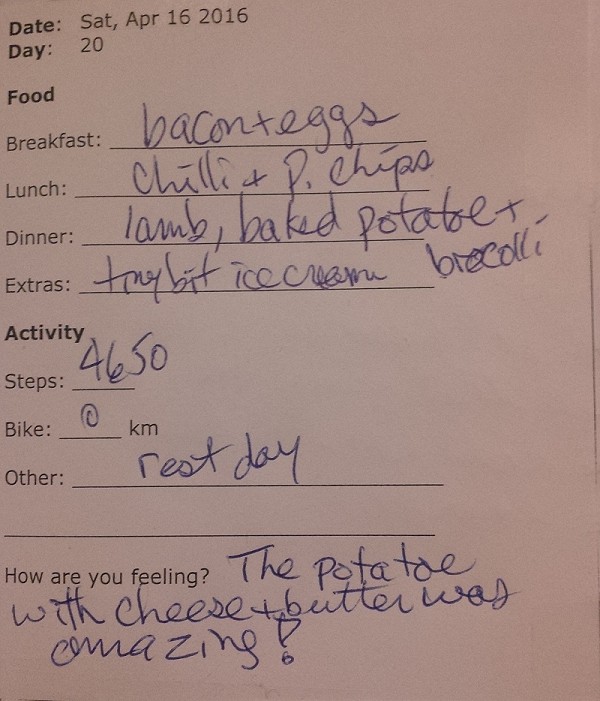 Date: Sat, Apr 16 2016
Day: 20
Food
Breakfast: bacon+eggs
Lunch: Chilli + P. Chips
Dinner: lamb, baked potatoe +
brocolli
Extras: tiny bit ice cream
Activity
Steps: 4650
Bike: 0 km
Other: rest day
How are you feeling? The potatoe
with cheese + butter was
amazing!